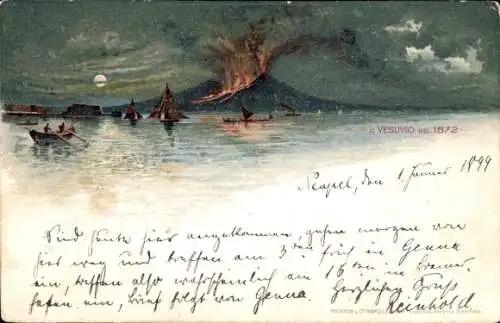 IL VESUVIO NEL 1872
Neapel, den 1. Januar 1899
Sind heute hier angekommen, gehen morgen von
hier weg und treffen am 3ten früh in Genua
ein, treffen also wahrscheinlich am 16ten in
ein, Brief folgt von Genua. Herzlichen Gruss
Reinhold.
RICHTER & Co NAPOLI